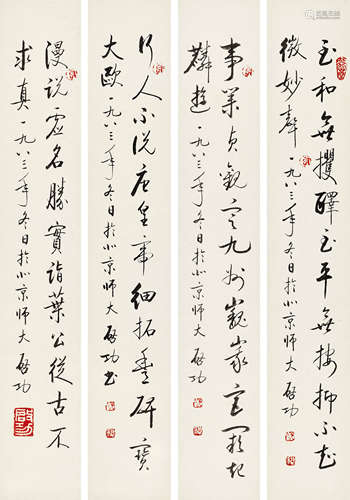 至和無攫醳至平無按抑不知
微妙聲 一九八三年冬日於北京師大 啟功
事業貞觀定九州巍峩宮闕起
麟遊 一九八三年冬日於北京師大 啟功
行人不說唐皇帝細拓豐碑寶
大歐 一九八三年冬日於北京師大 啟功書
漫說虛名勝實詣葉公從古不
求真 一九八三年冬日於北京師大 啟功
啟功